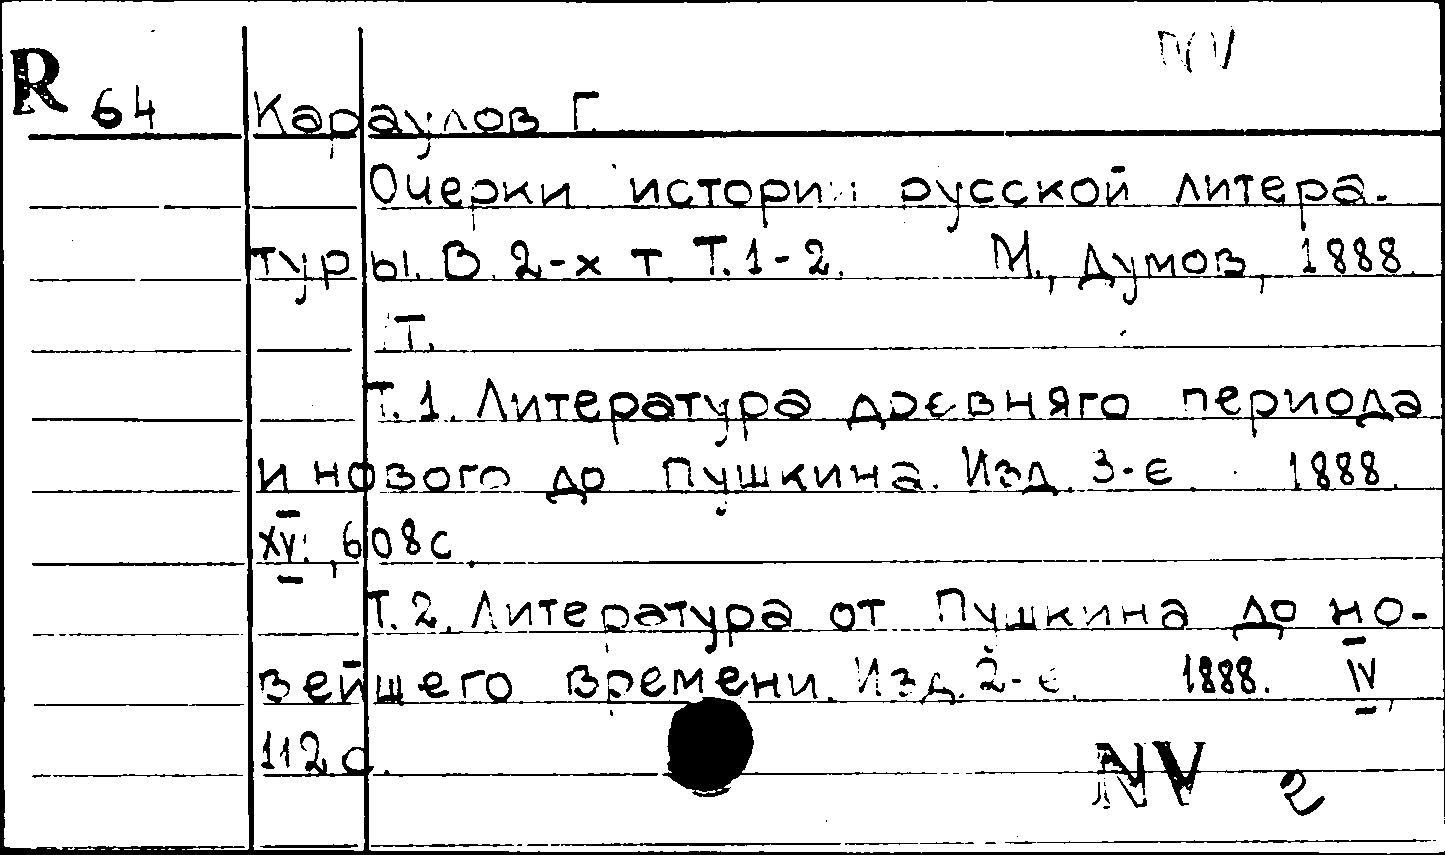 R 64 Караулов Г.
Очерки истории русской литера-
туры. В 2-х т. Т.1-2. М., Думов, 1888.
Т.
Т.1. Литература древняго периода
и нового до Пушкина. Изд. 3-е. 1888.
XV, 608с.
Т.2. Литература от Пушкина до но-
вейшего времени. Изд. 2-е. 1888. IV,
112с.
NV 2